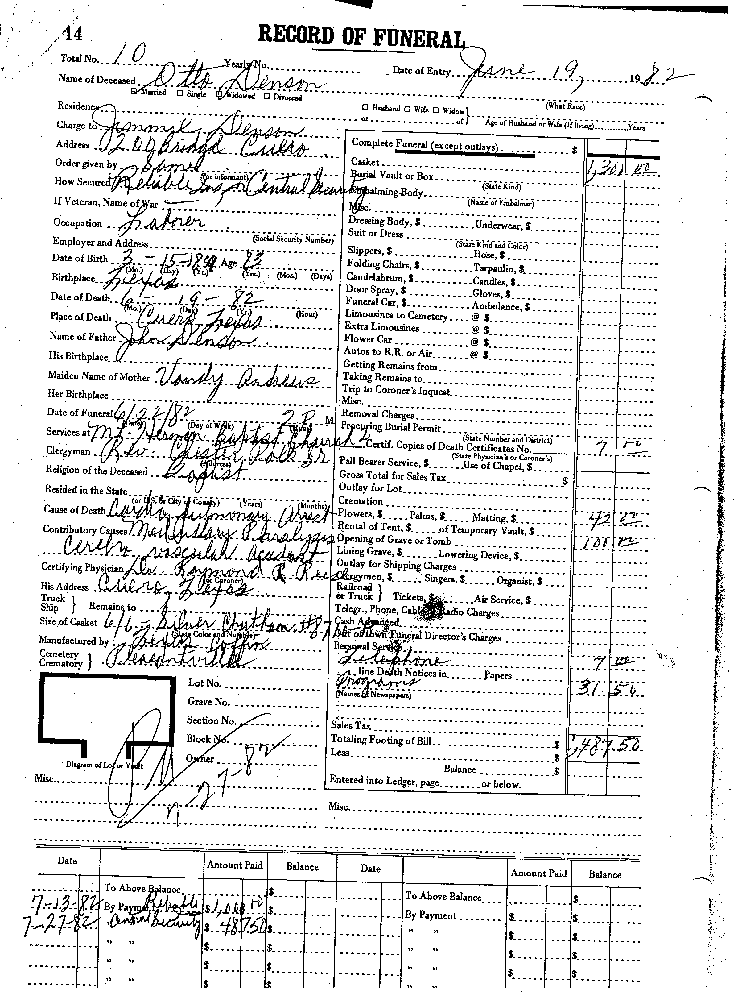 44
RECORD OF FUNERAL
Total No. 10 Yearly No.
Date of Entry June 19, 1982
Name of Deceased Otto Denson
Married Single Widowed Divorced
(What Race)
Residence
Husband Wife Widow or of
Age of Husband or Wife (If living) Years
Charge to Jimmie Denson
Address Cuero
Order given by Same
(or informant)
How Secured Reliable Ins, or Central Security
If Veteran, Name of War —
Occupation Laborer
Employer and Address
(Social Security Number)
Date of Birth 3 - 15 - 1899 Age 83
(Mo.) (Day) (Yr.) (Yrs.) (Mos.) (Days)
Birthplace Texas
Date of Death 6 - 19 - 82
(Mo.) (Hour)
Place of Death Cuero, Texas
Name of Father John Denson
His Birthplace
Maiden Name of Mother Vandy Andrews
Her Birthplace
Date of Funeral 6/22/82 2 P. M.
(Day of Week)
Services at Mt. Herman Baptist Church
Clergyman Rev.
Religion of the Deceased Baptist
Resided in the State
(or U.S. or City or County) (Years) (Months)
Cause of Death Cardio pulmonary Arrest
Contributory Causes Paralysis
Cerebro vascular accident
Certifying Physician Dr. Raymond R. Reese
(or Coroner)
His Address Cuero, Texas
Truck Ship Remains to
Size of Casket 6/6 - Silver
(State Color and Number)
Manufactured by Coffin
Cemetery Crematory
Lot No.
Grave No.
Section No.
Block No.
Owner
Diagram of Lot or Vault
Pd
7-27-82
Misc.
Complete Funeral (except outlays) $
Casket 1,300 00
Burial Vault or Box
(State Kind)
Embalming Body
(Name of Embalmer)
Misc.
Dressing Body, $ Underwear, $
Suit or Dress
(State Kind and Color)
Slippers, $ Hose, $
Folding Chairs, $ Tarpaulin, $
Candelabrum, $ Candles, $
Door Spray, $ Gloves, $
Funeral Car, $ Ambulance, $
Limousines to Cemetery @ $
Extra Limousines @ $
Flower Car @ $
Autos to R.R. or Air @ $
Getting Remains from
Taking Remains to
Trip to Coroner's Inquest
Misc.
Removal Charges
Procuring Burial Permit
(State Number and District)
Certif. Copies of Death Certificates No. 7 00
(State Physician's or Coroner's)
Pall Bearer Service, $ Use of Chapel, $
Gross Total for Sales Tax $
Outlay for Lot
Cremation
Flowers, $ Palms, $ Matting, $ 42 00
Rental of Tent, $ of Temporary Vault, $
Opening of Grave or Tomb 100 00
Lining Grave, $ Lowering Device, $
Outlay for Shipping Charges
Clergymen, $ Singers, $ Organist, $
Railroad or Truck Tickets, $ Air Service, $
Telegr., Phone, Cable, Radio Charges
Cash Advanced
Out of Town Funeral Director's Charges
Personal Service
Telephone 7 00
line Death Notices in Papers
Programs 31 50
(Names of Newspapers)
Sales Tax
Totaling Footing of Bill $ 1,487.50
Less $
Balance $
Entered into Ledger, page or below.
Misc.
Date Amount Paid Balance Date Amount Paid Balance
To Above Balance $ To Above Balance $
7-13-82 By Payment Reliable $ 1,000 00 By Payment $ $
7-27-82 Central Security $ 487 50 " " $ $
" " $ $ " " $ $
" " $ $ " " $ $